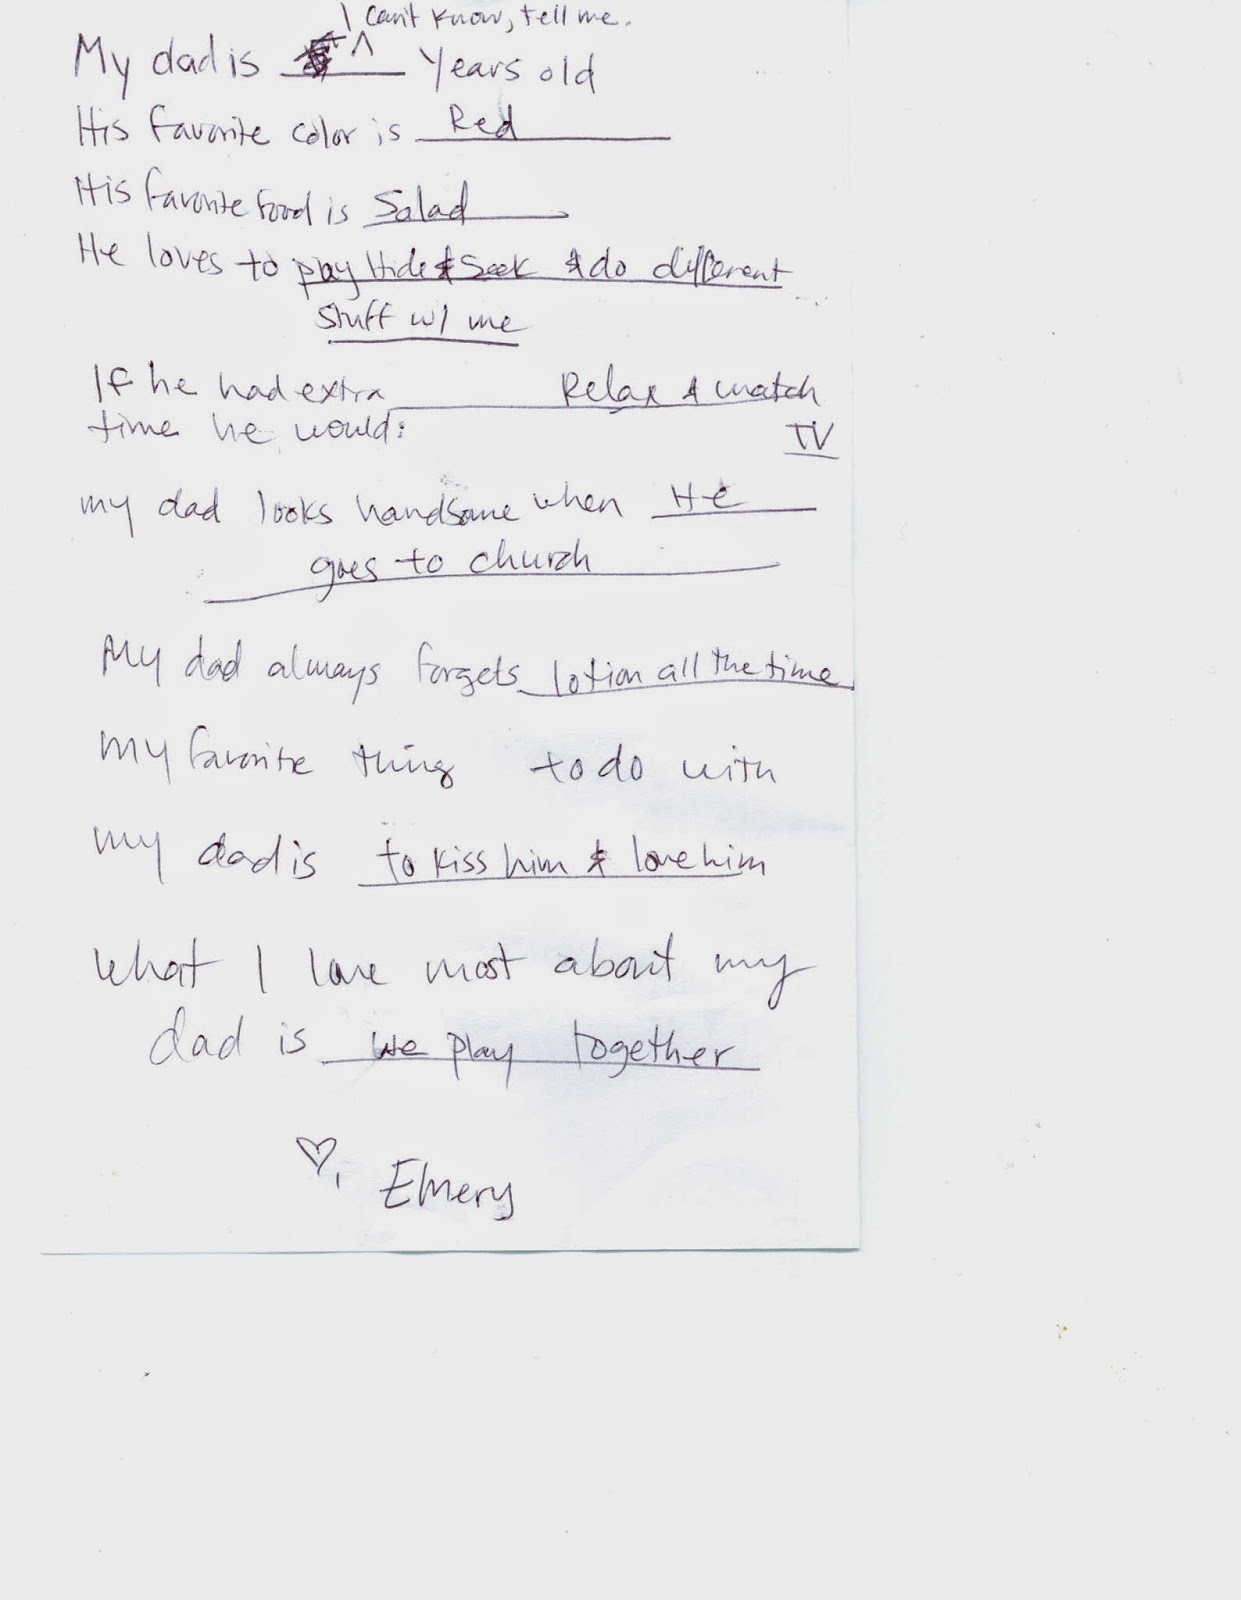 I can't know, tell me.
My dad is ^ years old
His favorite color is Red
His favorite food is Salad
He loves to play Hide & Seek & do different
stuff w/ me
If he had extra Relax & watch
time he would: TV
my dad looks handsome when He
goes to church
My dad always forgets lotion all the time
my favorite thing to do with
my dad is to kiss him & love him
What I love most about my
dad is we play together
♡, Emery